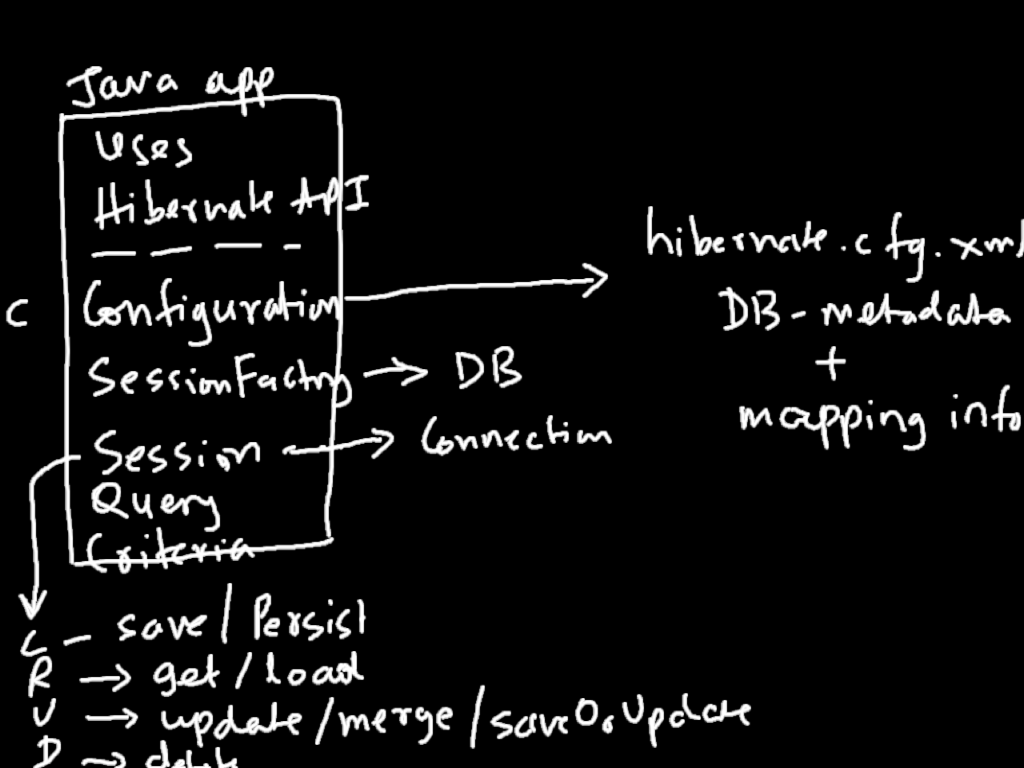 Java app
Uses
Hibernate API
hibernate.cfg.xml
C Configuration
DB - metadata
+
mapping info
SessionFactory → DB
Session → Connection
Query
Criteria
C - save / Persist
R → get / load
U → update / merge / saveOrUpdate
D → delete